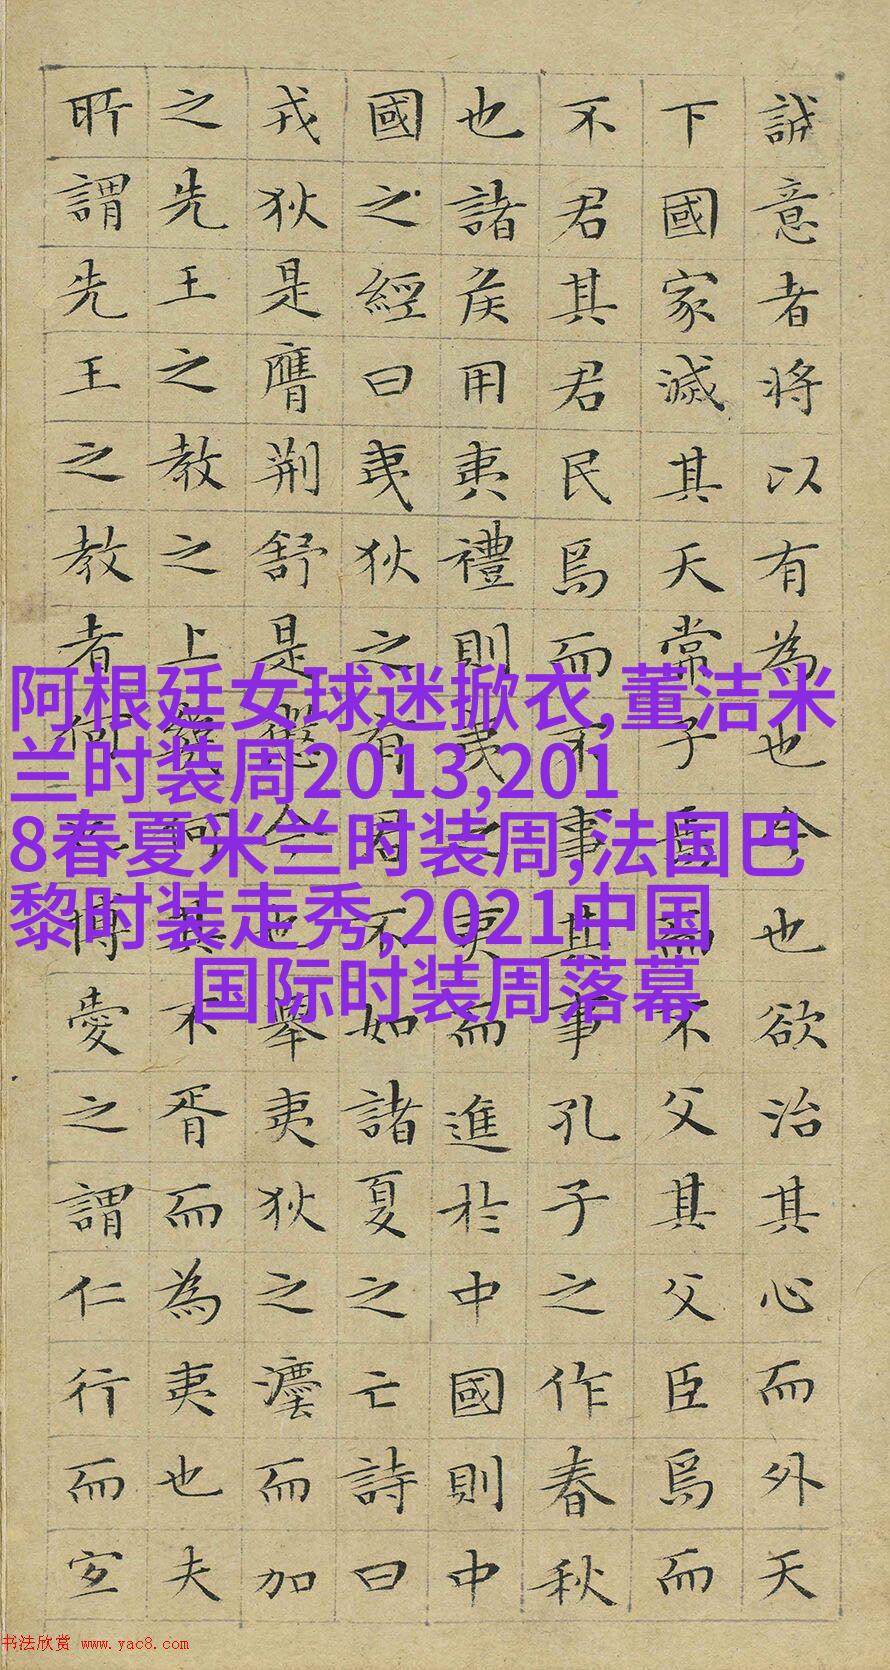 誠意者將以有為也今也欲治其心而外天
下國家滅其天常子焉而不父其父臣焉而
不君其君民焉而不事其事孔子之作春秋
也諸侯用夷禮則夷之夷而進於中國則中
國之經曰夷狄之有君不如諸夏之亡詩曰
戎狄是膺荊舒是懲今也舉夷狄之灋而加
之先王之教之上幾何其不胥而為夷也夫
所謂先王之教者何博愛之謂仁行而宜
阿根廷女球迷掀衣,董洁米
兰时装周2013,201
8春夏米兰时装周,法国巴
黎时装走秀,2021中国
国际时装周落幕
书法欣赏 www.yac8.com